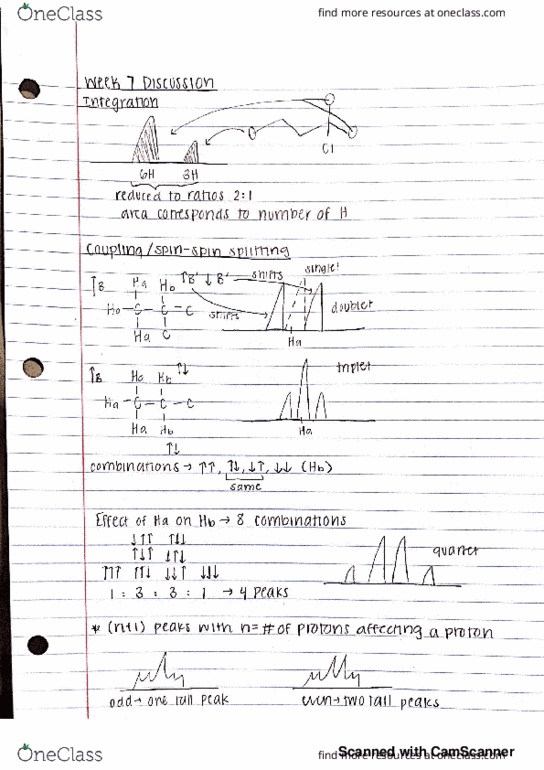 OneClass
find more resources at oneclass.com
Week 7 Discussion
Integration
Cl
6H 3H
reduced to ratios 2:1
area corresponds to number of H
Coupling/spin-spin splitting
↑B Ha Hb ↑B' ↓B' shifts singlet
Ha - C - C - C shifts doublet
Ha C Ha
↑B Ha Hb ↑↓ triplet
Ha - C - C - C
Ha Hb Ha
↑↓
combinations → ↑↑, ↑↓, ↓↑, ↓↓ (Hb)
same
Effect of Ha on Hb → 8 combinations
↓↑↑ ↑↓↓
↑↓↑ ↓↑↓ quartet
↑↑↑ ↑↑↓ ↓↓↑ ↓↓↓
1 : 3 : 3 : 1 → 4 peaks
* (n+1) peaks with n = # of protons affecting a proton
odd → one tall peak even → two tall peaks
OneClass
find more resources at oneclass.com
Scanned with CamScanner